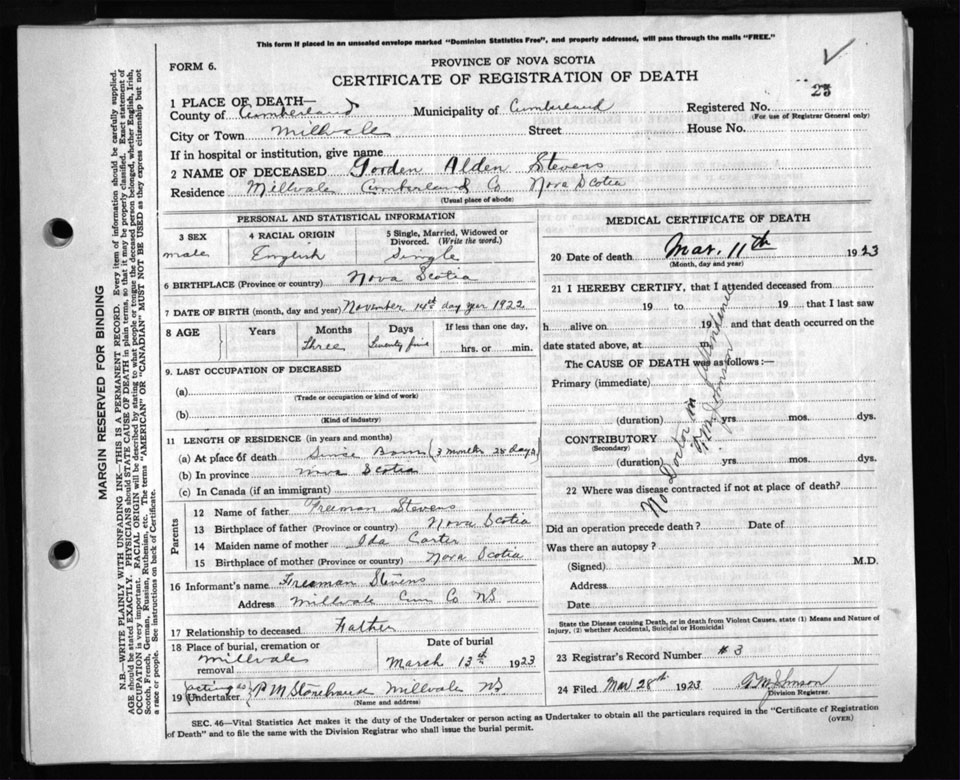 This form if placed in an unsealed envelope marked "Dominion Statistics Free", and properly addressed, will pass through the mails "FREE."
FORM 6.
PROVINCE OF NOVA SCOTIA
CERTIFICATE OF REGISTRATION OF DEATH
25
1 PLACE OF DEATH—
County of Cumberland Municipality of Cumberland Registered No.
(For use of Registrar General only)
City or Town Millvale Street House No.
If in hospital or institution, give name
2 NAME OF DECEASED Gorden Alden Stevens
Residence Millvale Cumberland Co Nova Scotia
(Usual place of abode)
PERSONAL AND STATISTICAL INFORMATION
3 SEX 4 RACIAL ORIGIN 5 Single, Married, Widowed or Divorced. (Write the word.)
male English Single
6 BIRTHPLACE (Province or country) Nova Scotia
7 DATE OF BIRTH (month, day and year) November 14th day year 1922
8 AGE Years Months Days If less than one day,
Three Twenty five hrs. or min.
9. LAST OCCUPATION OF DECEASED
(a)
(Trade or occupation or kind of work)
(b)
(Kind of industry)
11 LENGTH OF RESIDENCE (in years and months)
(a) At place of death Since Born (3 months 28 days)
(b) In province Nova Scotia
(c) In Canada (if an immigrant)
Parents
12 Name of father Freeman Stevens
13 Birthplace of father (Province or country) Nova Scotia
14 Maiden name of mother Ida Carter
15 Birthplace of mother (Province or country) Nova Scotia
16 Informant's name Freeman Stevens
Address Millvale Cum Co NS
17 Relationship to deceased Father
18 Place of burial, cremation or removal Millvale Date of burial March 13th 1923
19 (acting as) Undertaker P M Millvale NS
(Name and address)
MEDICAL CERTIFICATE OF DEATH
20 Date of death Mar. 11th 1923
(Month, day and year)
21 I HEREBY CERTIFY, that I attended deceased from
19 to 19 that I last saw
h alive on 19 and that death occurred on the
date stated above, at
The CAUSE OF DEATH was as follows:—
Primary (immediate)
(duration) yrs. mos. dys.
CONTRIBUTORY
(Secondary)
(duration) yrs. mos. dys.
No Doctor in Attendance
F. M. Johnson
22 Where was disease contracted if not at place of death?
Did an operation precede death? Date of
Was there an autopsy?
(Signed) M.D.
Address
Date
State the Disease causing Death, or in death from Violent Causes, state (1) Means and Nature of
Injury, (2) whether Accidental, Suicidal or Homicidal
23 Registrar's Record Number #3
24 Filed Mar 28th 1923 F. M. Johnson
Division Registrar.
SEC. 46—Vital Statistics Act makes it the duty of the Undertaker or person acting as Undertaker to obtain all the particulars required in the "Certificate of Registration
of Death" and to file the same with the Division Registrar who shall issue the burial permit.
(OVER)
MARGIN RESERVED FOR BINDING
N.B.—WRITE PLAINLY WITH UNFADING INK—THIS IS A PERMANENT RECORD. Every item of information should be carefully supplied.
AGE should be stated EXACTLY. PHYSICIANS should STATE CAUSE OF DEATH in plain terms, so that it may be properly classified. Exact statement of
OCCUPATION is very important. RACIAL ORIGIN will be described by stating to what people or tongue the deceased person belonged, whether English, Irish,
Scotch, French, German, Russian, Ruthenian, etc. The terms "AMERICAN" OR "CANADIAN" MUST NOT BE USED as they express citizenship but not
a race or people. See instructions on back of Certificate.